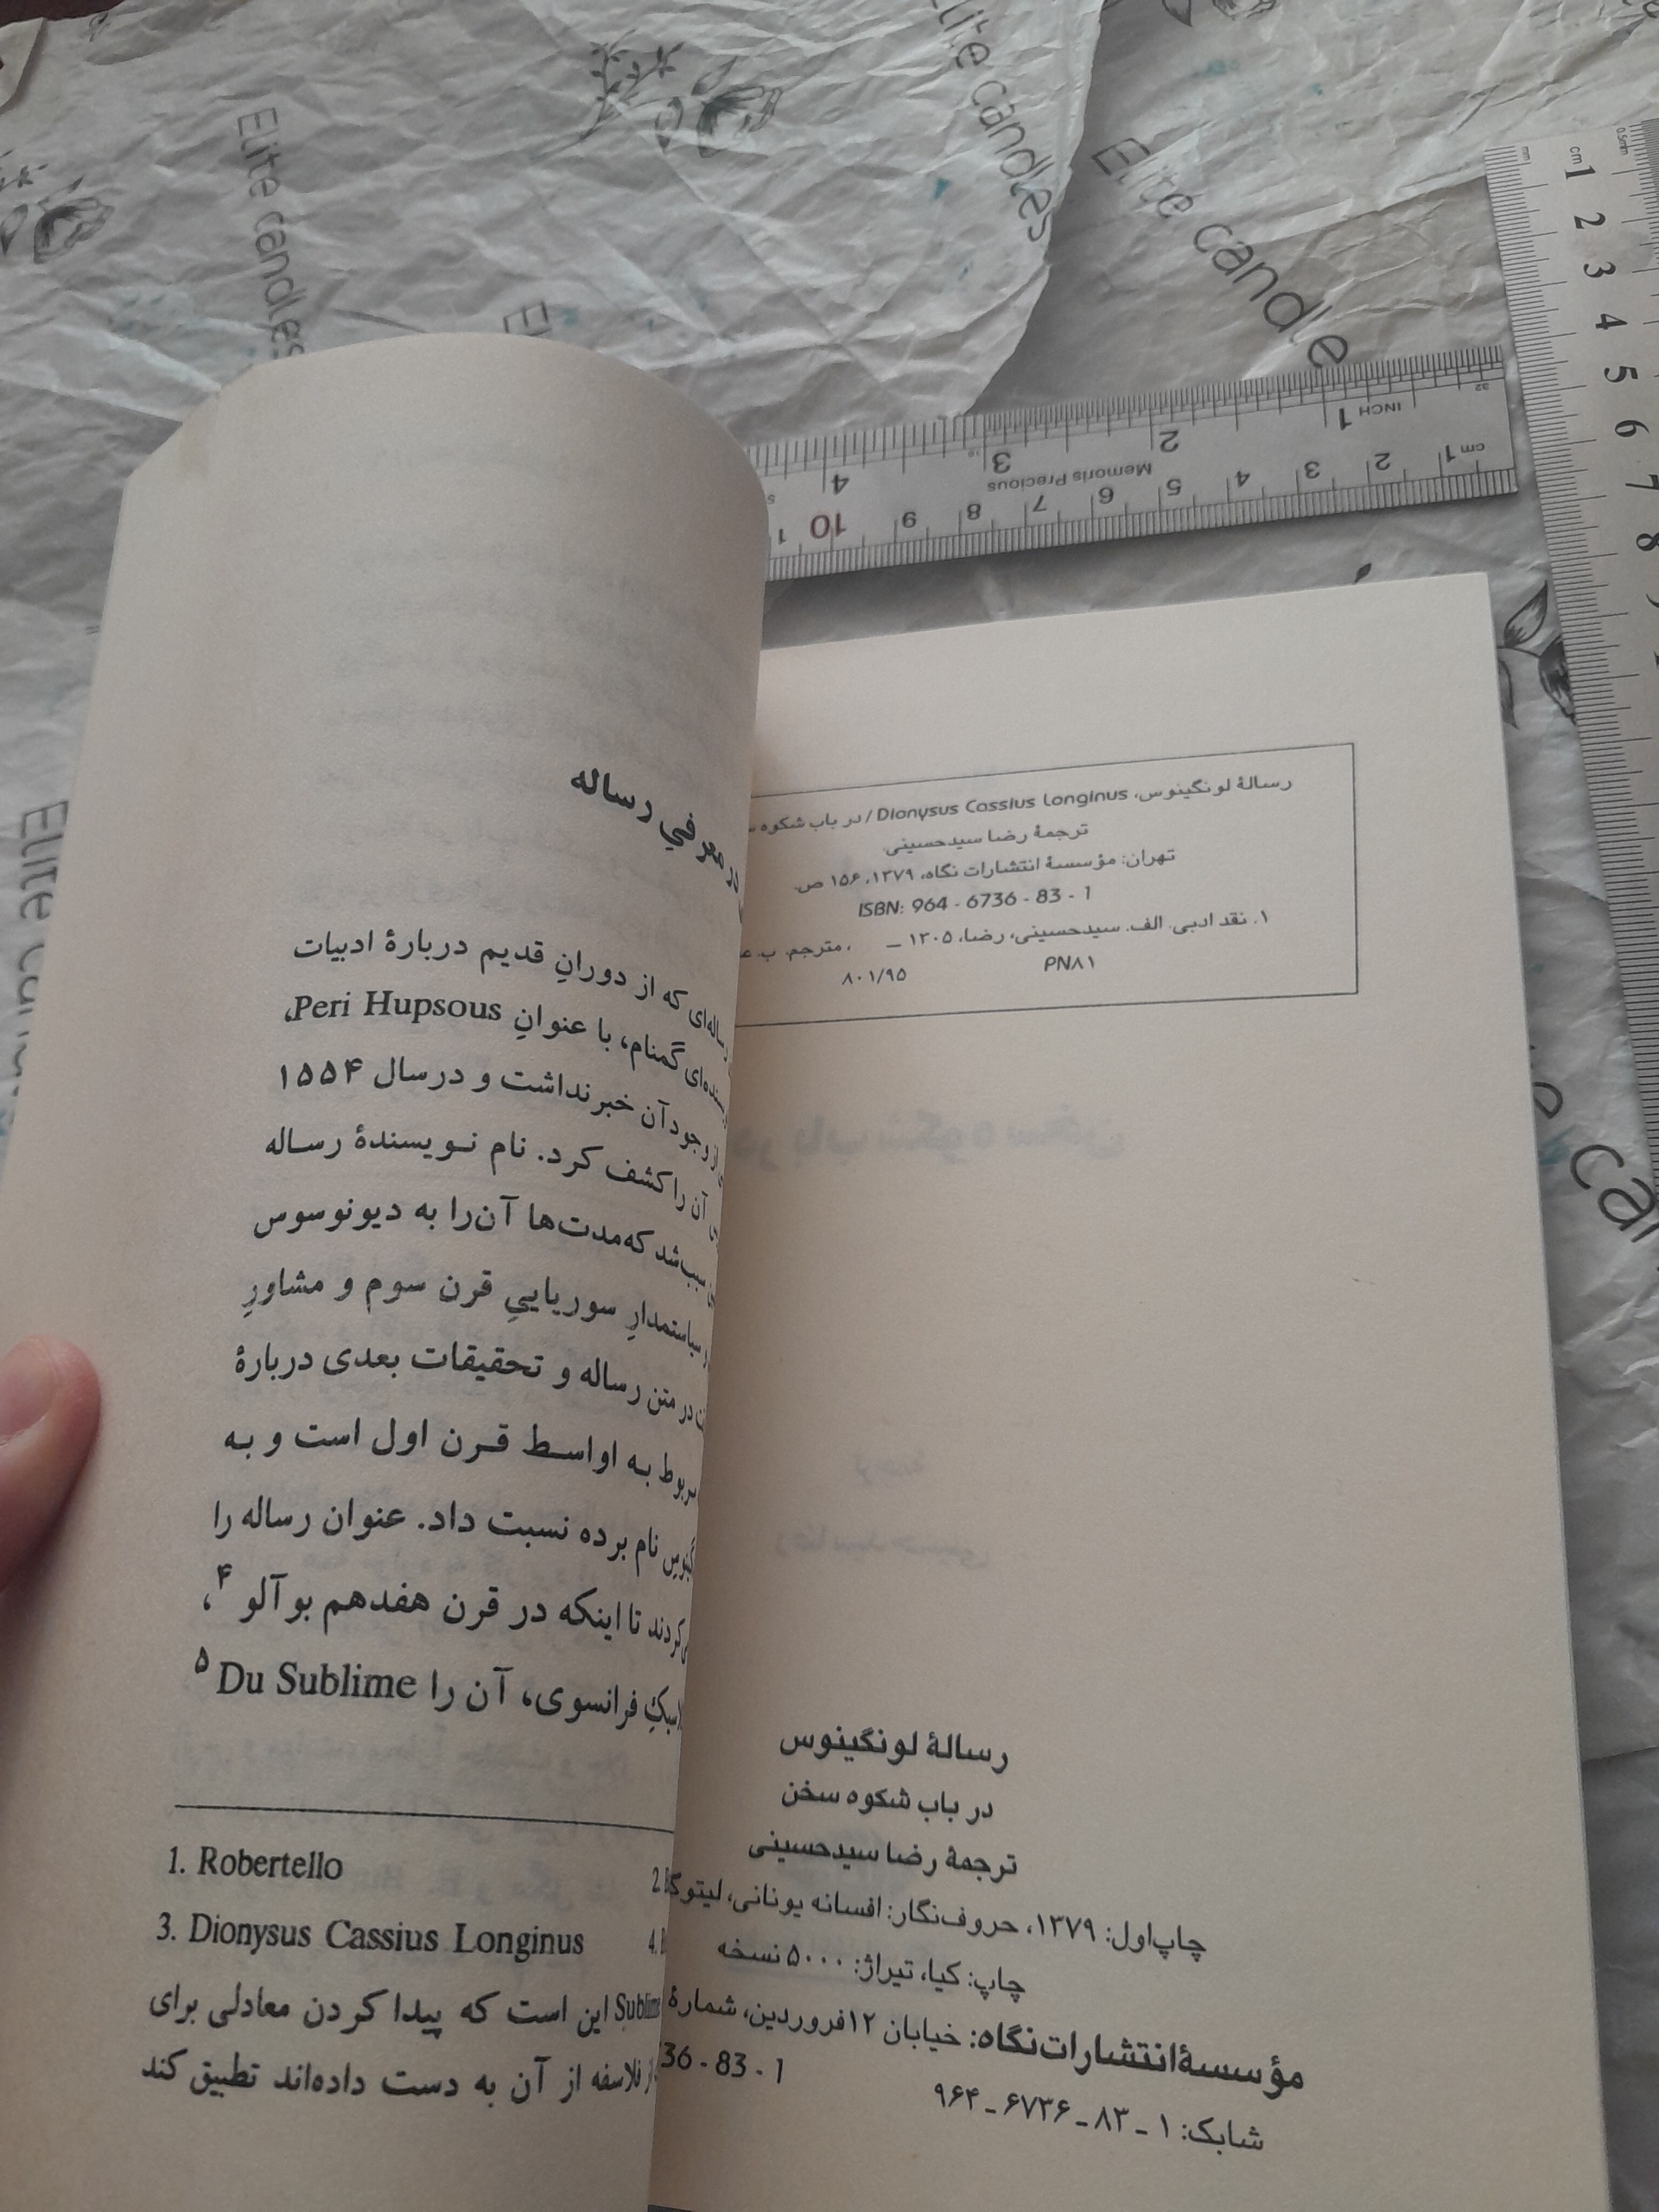 رسالهٔ لونگینوس، Dionysus Cassius Longinus / در باب شکوه
ترجمهٔ رضا سیدحسینی.
تهران: مؤسسهٔ انتشارات نگاه، ۱۳۷۹، ۱۵۶ ص.
ISBN: 964 - 6736 - 83 - 1
۱. نقد ادبی. الف. سیدحسینی، رضا، ۱۳۰۵ – ، مترجم. ب.
PN۸۱
۸۰۱/۹۵
رسالهٔ لونگینوس
در باب شکوه سخن
ترجمهٔ رضا سیدحسینی
چاپ‌اول: ۱۳۷۹، حروف‌نگار: افسانه یونانی،
چاپ: کیا، تیراژ: ۵۰۰۰ نسخه
مؤسسهٔ‌انتشارات‌نگاه: خیابان ۱۲فروردین، شمارهٔ
36 - 83 - 1
شابک: ۱ ـ ۸۳ ـ ۶۷۳۶ ـ ۹۶۴
در معرفیِ رساله
که از دورانِ قدیم دربارهٔ ادبیات
گمنام، با عنوانِ Peri Hupsous،
از وجود آن خبر نداشت و درسال ۱۵۵۴
آن را کشف کرد. نام نویسندهٔ رساله
که‌مدت‌ها آن‌را به دیونوسوس
سیاستمدارِ سوریاییِ قرن سوم و مشاورِ
در متن رساله و تحقیقات بعدی دربارهٔ
مربوط به اواسط قرن اول است و به
نام برده نسبت داد. عنوان رساله را
تا اینکه در قرن هفدهم بوآلو ۴،
فرانسوی، آن را Du Sublime ۵
1. Robertello
3. Dionysus Cassius Longinus
Sublime این است که پیدا کردن معادلی برای
فلاسفه از آن به دست داده‌اند تطبیق کند
Elite candles
Elite candles
Elite candle
Memoris Precious
INCH 1 2 3 4
cm 1 2 3 4 5 6 7 8 9 10
0.5mm
mm
cm 1 2 3 4 5 6 7 8